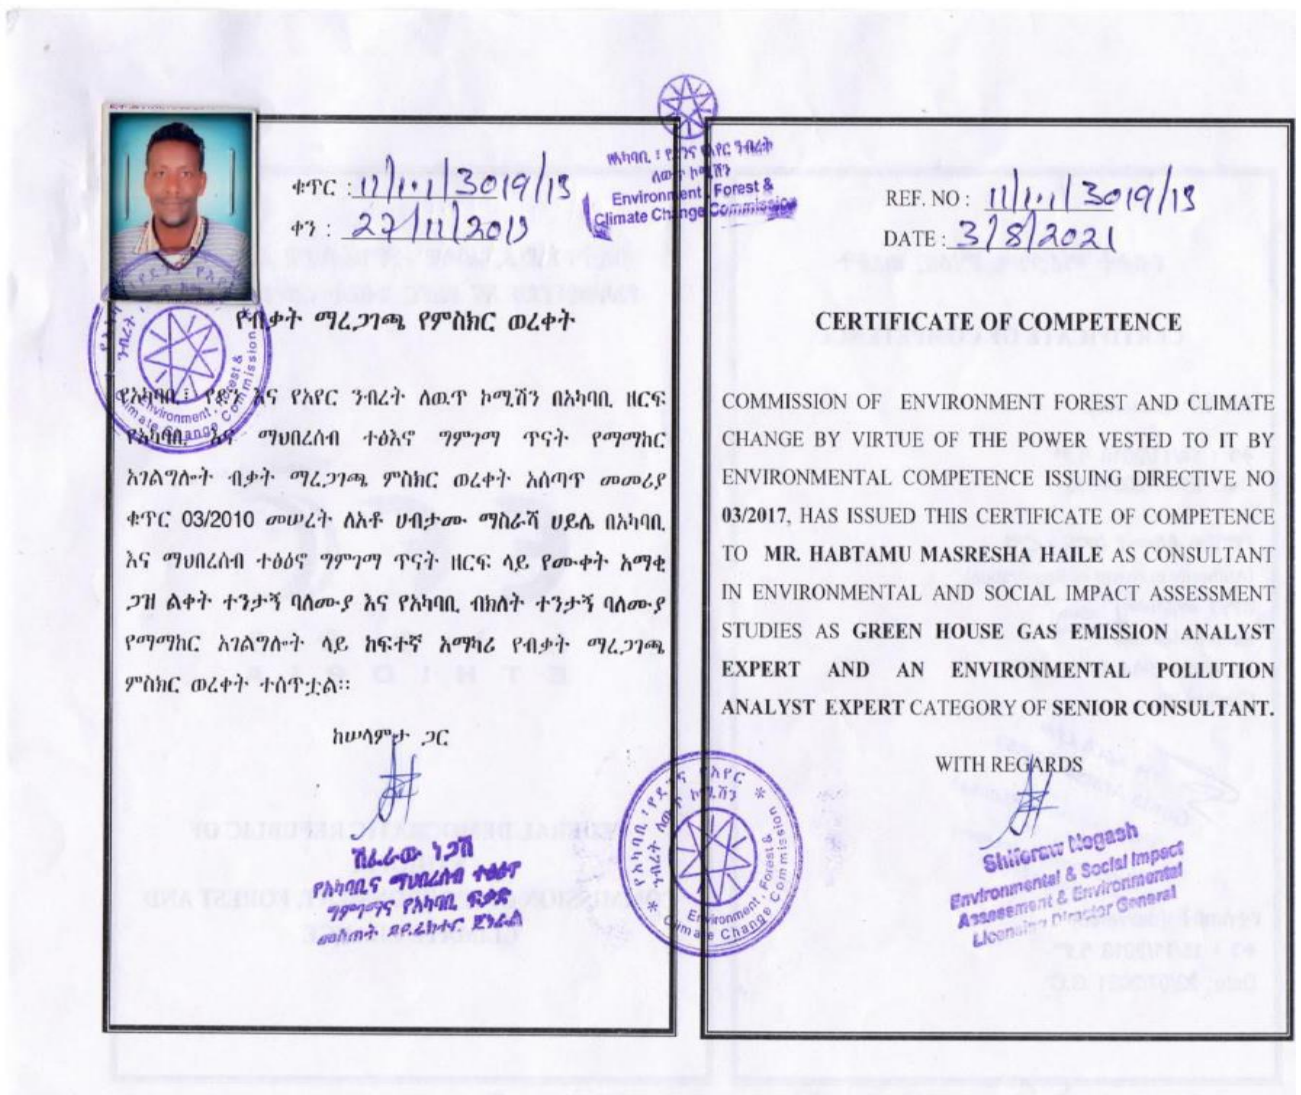 የአካባቢ ፣ የደንና የአየር ንብረት
ለውጥ ኮሚሽን
Environment, Forest &
Climate Change Commission
ቁጥር : 11/1.1/3019/13
ቀን : 27/11/2013
የብቃት ማረጋገጫ የምስክር ወረቀት
የአካባቢ፣ የደን እና የአየር ንብረት ለዉጥ ኮሚሽን በአካባቢ ዘርፍ
የአካባቢ እና ማህበረሰብ ተፅእኖ ግምገማ ጥናት የማማከር
አገልግሎት ብቃት ማረጋገጫ ምስክር ወረቀት አሰጣጥ መመሪያ
ቁጥር 03/2010 መሠረት ለአቶ ሀብታሙ ማስራሻ ሀይሌ በአካባቢ
እና ማህበረሰብ ተፅዕኖ ግምገማ ጥናት ዘርፍ ላይ የሙቀት አማቂ
ጋዝ ልቀት ተንታኝ ባለሙያ እና የአካባቢ ብክለት ተንታኝ ባለሙያ
የማማከር አገልግሎት ላይ ከፍተኛ አማካሪ የብቃት ማረጋገጫ
ምስክር ወረቀት ተሰጥቷል፡፡
ከሠላምታ ጋር
ሽፈራው ነጋሽ
የአካባቢና ማህበረሰብ ተፅዕኖ
ግምገማና የአካባቢ ፍቃድ
መስጠት ዳይሬክተር ጀነራል
REF. NO : 11/1.1/3019/13
DATE : 3/8/2021
CERTIFICATE OF COMPETENCE
COMMISSION OF ENVIRONMENT FOREST AND CLIMATE
CHANGE BY VIRTUE OF THE POWER VESTED TO IT BY
ENVIRONMENTAL COMPETENCE ISSUING DIRECTIVE NO
03/2017, HAS ISSUED THIS CERTIFICATE OF COMPETENCE
TO MR. HABTAMU MASRESHA HAILE AS CONSULTANT
IN ENVIRONMENTAL AND SOCIAL IMPACT ASSESSMENT
STUDIES AS GREEN HOUSE GAS EMISSION ANALYST
EXPERT AND AN ENVIRONMENTAL POLLUTION
ANALYST EXPERT CATEGORY OF SENIOR CONSULTANT.
WITH REGARDS
Shiferaw Negash
Environmental & Social Impact
Assessment & Environmental
Licensing Director General
የአካባቢ ፣ የደንና የአየር
ንብረት ለውጥ ኮሚሽን
Environment, Forest &
Climate Change Commission